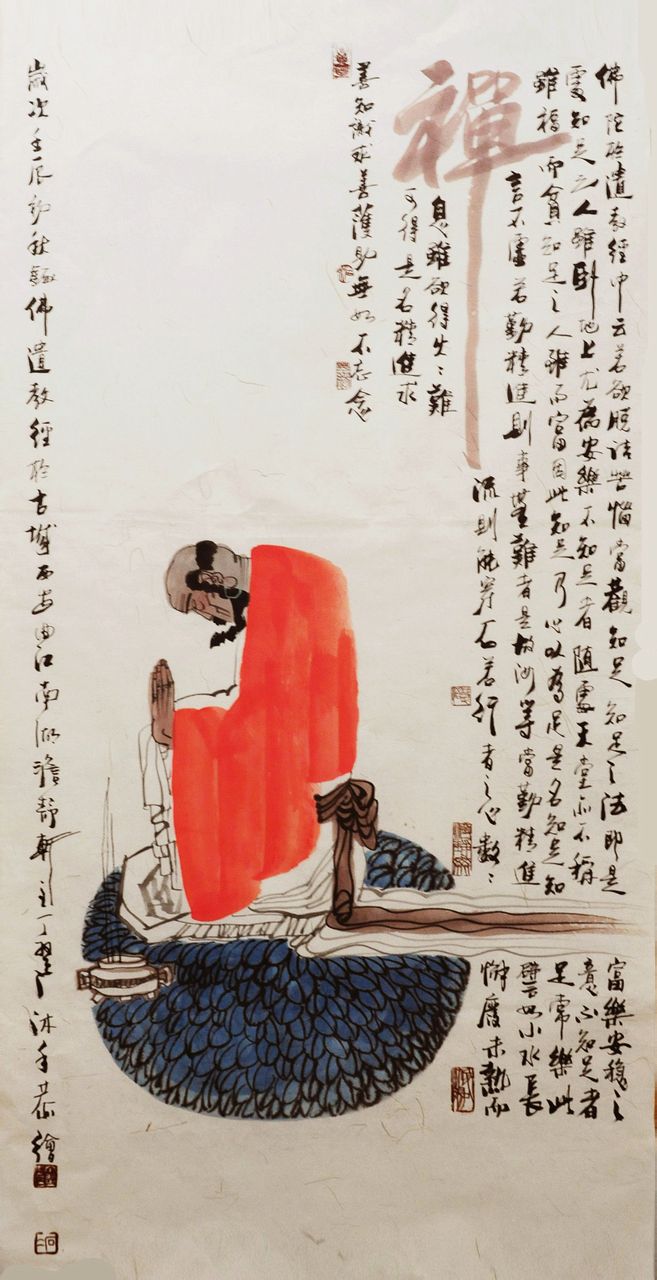 禪
佛陀於遺教經中云若欲脫諸苦惱當觀知足知足之法即是富樂安穩之
處知足之人雖臥地上尤為安樂不知足者隨處天堂亦不稱意不知足者
雖福而貧知足之人雖而富因此知足乃心以為足是名知足知足常樂此
言不虛若勤精進則事無難者是故汝等當勤精進譬如小水長
流則能穿石若行者之心數〻懈廢未熱而
息雖欲得火〻難
可得是名精進求
善知識求善護助無如不忘念
歲次壬辰初秋錄佛遺教經於古城西安曲江南湖澹靜軒主丁沐手恭繪